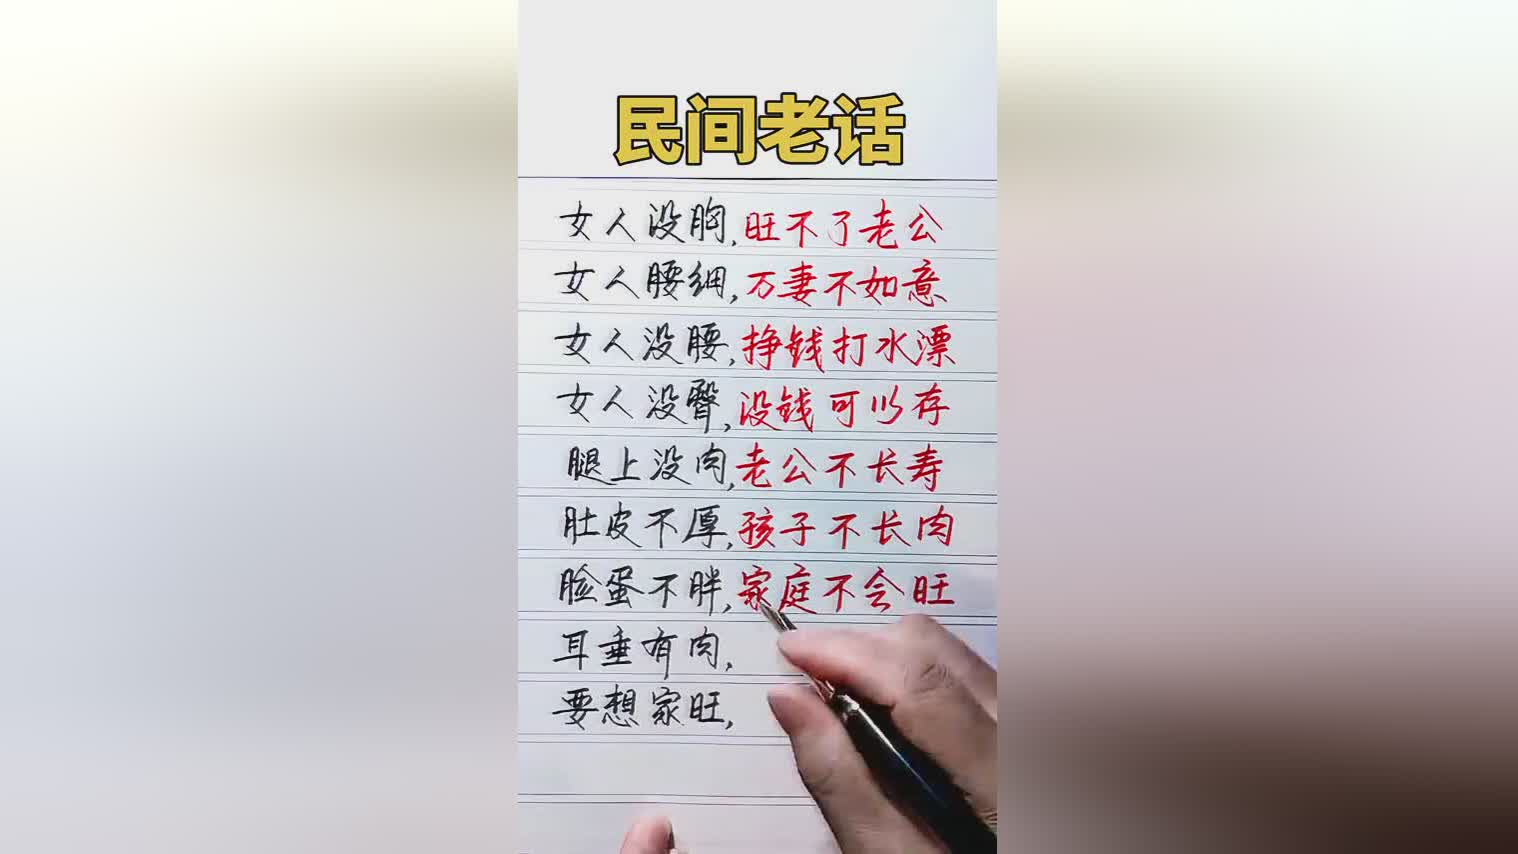 民间老话
女人没胸,旺不了老公
女人腰细,万妻不如意
女人没腰,挣钱打水漂
女人没臀,没钱可以存
腿上没肉,老公不长寿
肚皮不厚,孩子不长肉
脸蛋不胖,家庭不会旺
耳垂有肉,
要想家旺,